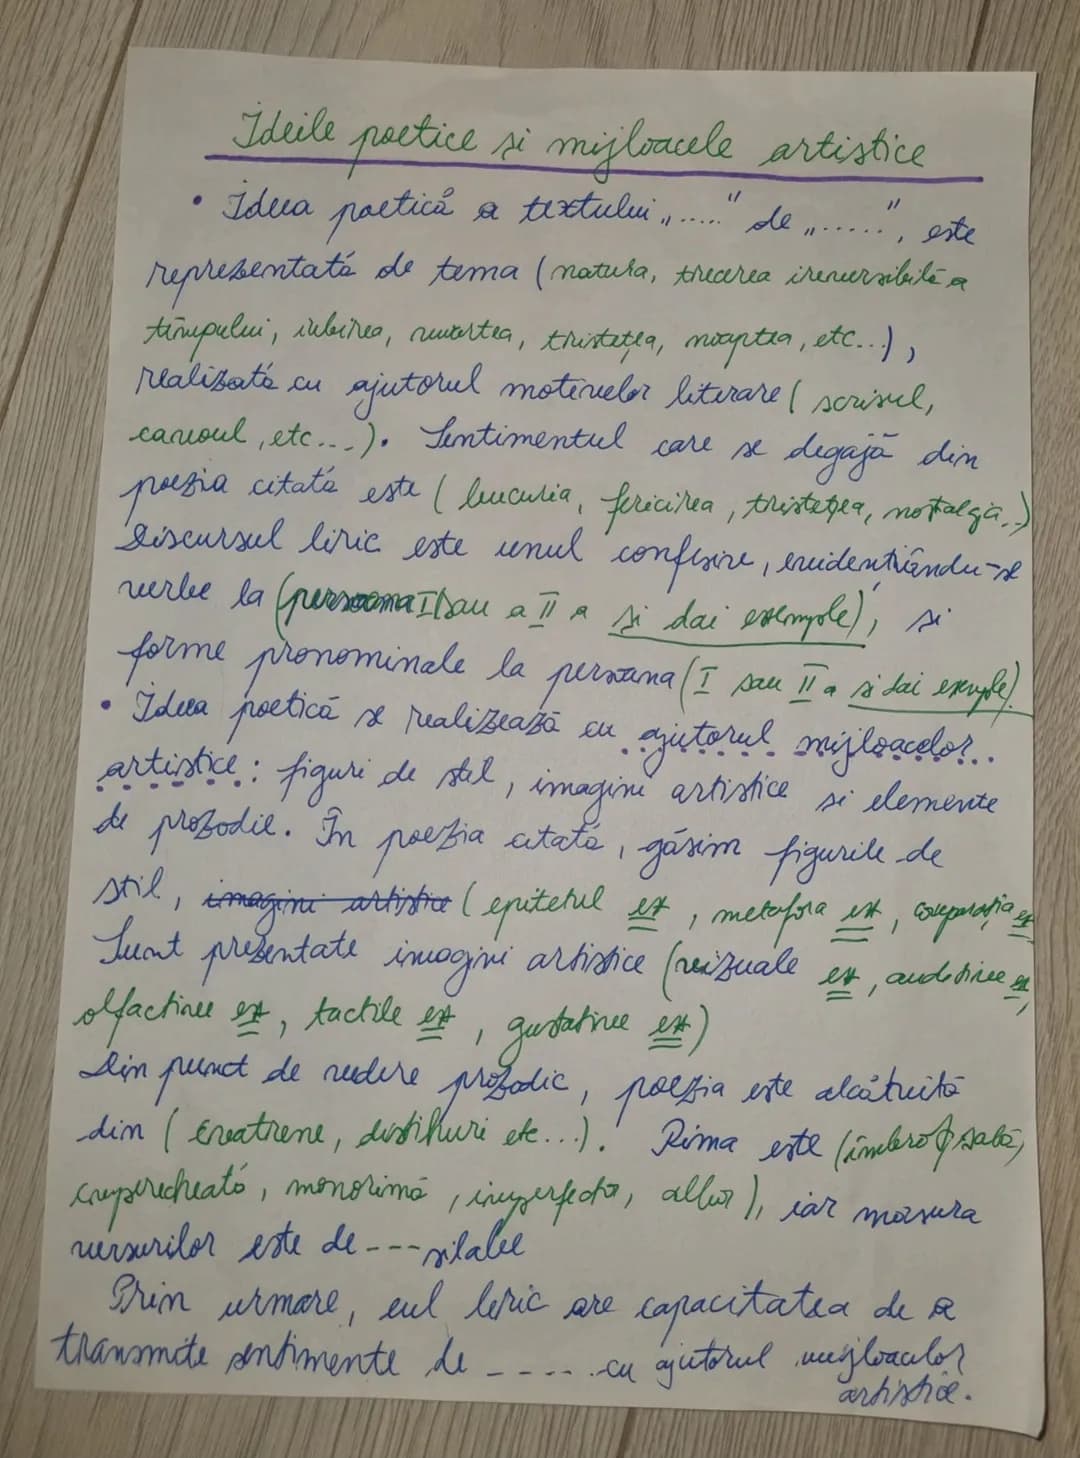 Ideile poetice si mijloacele artistice
• Ideea poetică a textului „....." de „.....", este
reprezentată de tema (natura, trecerea ireversibilă a
timpului, iubirea, moartea, tristețea, noaptea, etc...),
realizată cu ajutorul motivelor literare ( scrisul,
cavoul, etc...). Sentimentul care se degajă din
poezia citată este ( bucuria, fericirea, tristețea, nostalgia..)
Discursul liric este unul confesiv, evidențiându-se
verbe la (persoana I sau a II a si dai exemple), si
forme pronominale la persoana (I sau II a si dai exemple).
• Ideea poetică se realizează cu ajutorul mijloacelor
artistice: figuri de stil, imagini artistice si elemente
de prozodie. În poezia citată, găsim figurile de
stil, imagini artistice ( epitetul ex, metafora ex, comparația ex
Sunt prezentate imagini artistice (vizuale ex, auditive ex,
olfactive ex, tactile ex, gustative ex)
Din punct de vedere prozodic, poezia este alcătuită
din ( catrene, distihuri etc...). Rima este (îmbrățișată,
împerecheată, monorimă, imperfectă, albă), iar măsura
versurilor este de --- silabe
Prin urmare, eul liric are capacitatea de a
transmite sentimente de ----- cu ajutorul mijloacelor
artistice.